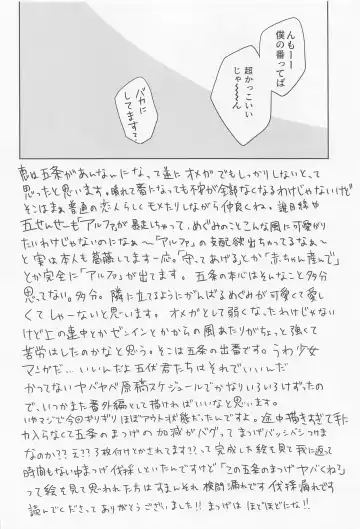 んもーー
僕の番ってば
超かっこいい
じゃ〜〜ん
バカに
してます?
恵は五条があんなんになって逆にオメガでもしっかりしないとって
思ったと思います。晴れて番になっても不安が全部なくなるわけじゃないけど
そこはまぁ普通の恋人らしくモメたりしながら仲良くね。誕日緑や
五せんせーも「アルファが暴走しちゃって、めぐみのことこんな風に可愛がり
たいわけじゃないのになぁ〜「アルファ」の支配欲出ちゃってるなぁ〜
と実は本人も葛藤してます一応。「守ってあげる」とか「赤ちゃん産んで」
とか完全に「アルファ」が出てます。五条の本心はそんなこと多分
思ってない。多分。隣に立てるようにがんばるめぐみが可愛くて愛し
くてしゃーないと思います。オメガとして弱くなったわけじゃない
けど上の連中とかゼンインとかからの風あたりがちょっと強くて
苦労はしたのかなと思う。そこは五条の出番です。うわ少女
マンガだ…いいんだよ五伏君たちはそれでいいんだ
かつてないヤバヤバ原稿スケジュールでかなりいろいろけずったの
で、いつかまた番外編として描ければいいなと思います。
いやマジで今回ギリギリほぼアウト状態だったんですよ。途中描きすぎて手に
力入らなくて五条のまつげの加減がバグってまつげバッシバシつけま
なのか??え??3枚付けとかされてます??って完成した絵を見て我に返って
時間もない中まつげ伐採しといたんですけど「この五条のまつげヤバくね?」
って絵を見て思われた方はすまんそれ検問漏れです伐採漏れです
読んでくださってありがとうございました!!まつげはほどほどにな!!